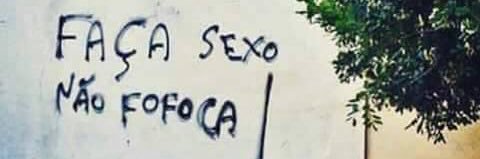 FAÇA SEXO
NÃO FOFOCA